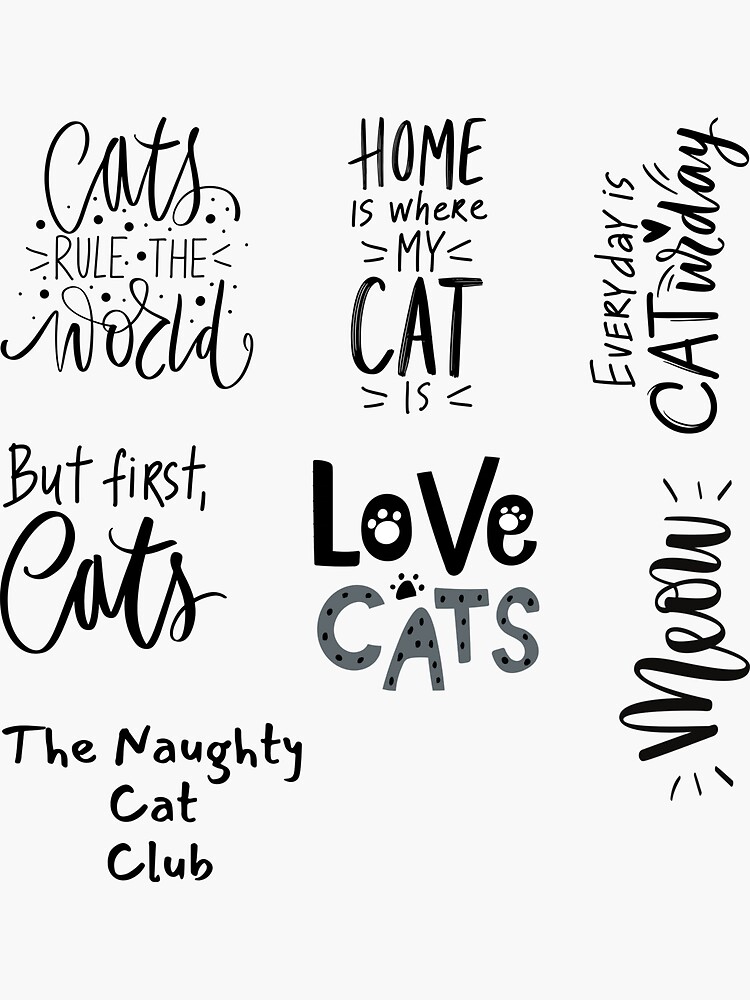 Cats
RULE • THE
World
HOME
IS WHERE
MY
CAT
IS
EVERY day is
CATurday
But first,
Cats
LoVe
CATS
Meow
The Naughty
Cat
Club